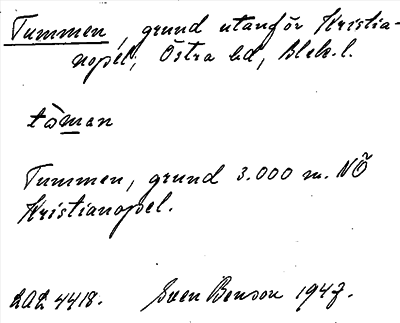 Tummen, grund utanför Kristia-
nopel, Östra hd, Blek. l.
tòman
Tummen, grund 3.000 m. NÖ
Kristianopel.
4418. Sven Benson 1947.